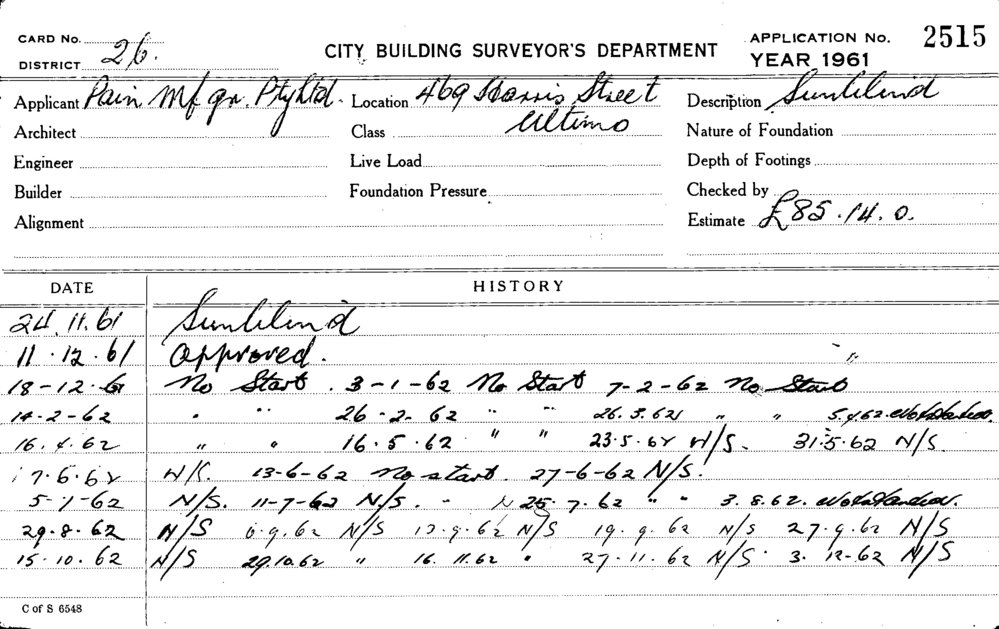 CARD No.
DISTRICT 26.
CITY BUILDING SURVEYOR'S DEPARTMENT
APPLICATION No. 2515
YEAR 1961
Applicant Pain Mfgr. Pty Ltd. Location 469 Harris Street Description Sunblind
Ultimo
Architect Class Nature of Foundation
Engineer Live Load Depth of Footings
Builder Foundation Pressure Checked by
Alignment Estimate £85.14.0.
DATE HISTORY
24.11.61 Sunblind
11.12.61 Approved. "
18-12-61 No Start. 3-1-62 No Start 7-2-62 No Start
14-2-62 " " 26-2-62 " " 26.3.62 " " 5.4.62. Not started.
16.4.62 " " 16.5.62 " " 23.5.62 N/S. 31.5.62 N/S.
7.6.62 N/S. 13-6-62 No start. 27-6-62 N/S.
5-7-62 N/S. 11-7-62 N/S. " 25.7.62 " " 3.8.62. Not started.
29.8.62 N/S 6.9.62 N/S 13.9.62 N/S 19.9.62 N/S 27.9.62 N/S
15.10.62 N/S 29.10.62 " 16.11.62 " 27.11.62 N/S. 3.12-62 N/S
C of S 6548